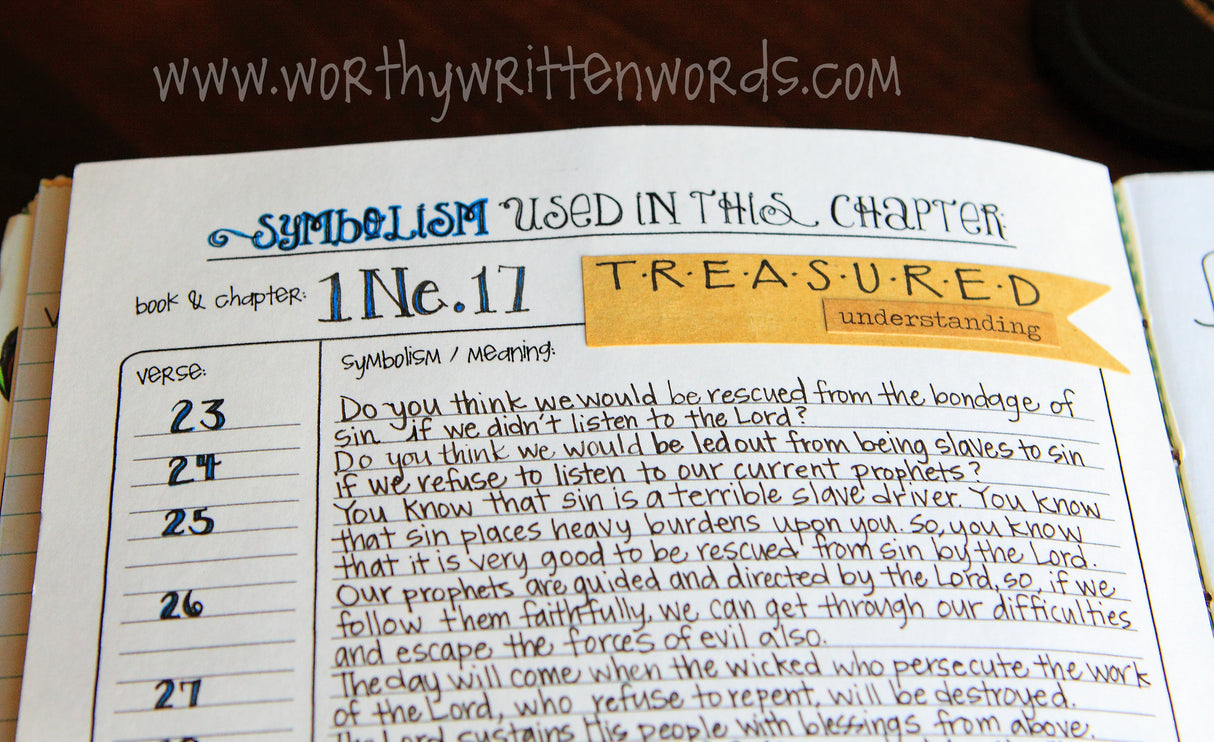 www.worthywrittenwords.com
SYMBOLISM USED IN THIS CHAPTER:
book & chapter: 1 Ne. 17
T·R·E·A·S·U·R·E·D
understanding
verse:
symbolism / meaning:
23
Do you think we would be rescued from the bondage of
sin if we didn't listen to the Lord?
24
Do you think we would be led out from being slaves to sin
if we refuse to listen to our current prophets?
25
You know that sin is a terrible slave driver. You know
that sin places heavy burdens upon you. So, you know
that it is very good to be rescued from sin by the Lord.
26
Our prophets are guided and directed by the Lord, so, if we
follow them faithfully, we can get through our difficulties
and escape the forces of evil also.
27
The day will come when the wicked who persecute the work
of the Lord, who refuse to repent, will be destroyed.
The Lord sustains His people with blessings from above.